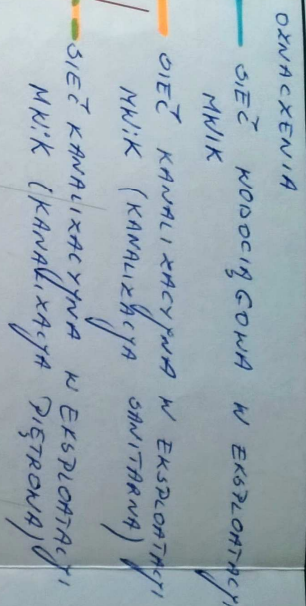 OZNACZENIA
SIEĆ WODOCIĄGOWA W EKSPLOATACY
MWIK
SIEĆ KANALIZACYJNA W EKSPLOATACYI
MWiK (KANALIZACJA SANITARNA)
SIEĆ KANALIZACYJNA W EKSPLOATACYI
MWiK (KANALIZACJA PIĘTROWA)